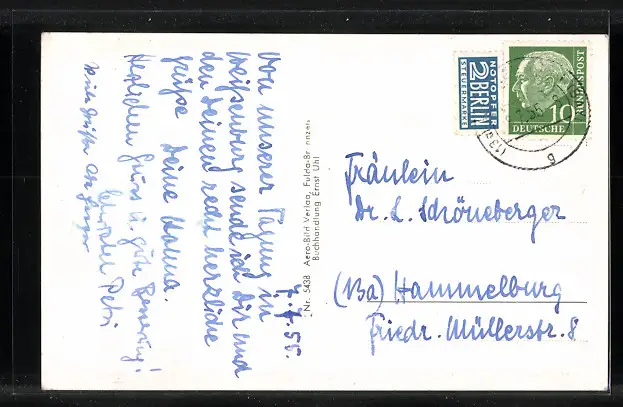 7.7.55.
Von unserer Tagung in
Weißenburg sende ich Dir und
den Deinen recht herzliche
Grüße Deine Hanna.
Herzlichen Gruss u. gute Besserung!
Petri
Viele Grüße
Nr. 5438 Aero-Bild Verlag, Fulda-Br onzell
Buchhandlung Ernst Uhl
NOTOPFER
2 BERLIN
STEUERMARKE
DEUTSCHE
BUNDESPOST
10
(13a)
b
Fräulein
Dr. L. Schöneberger
(13a) Hammelburg
Friedr. Müllerstr. 8